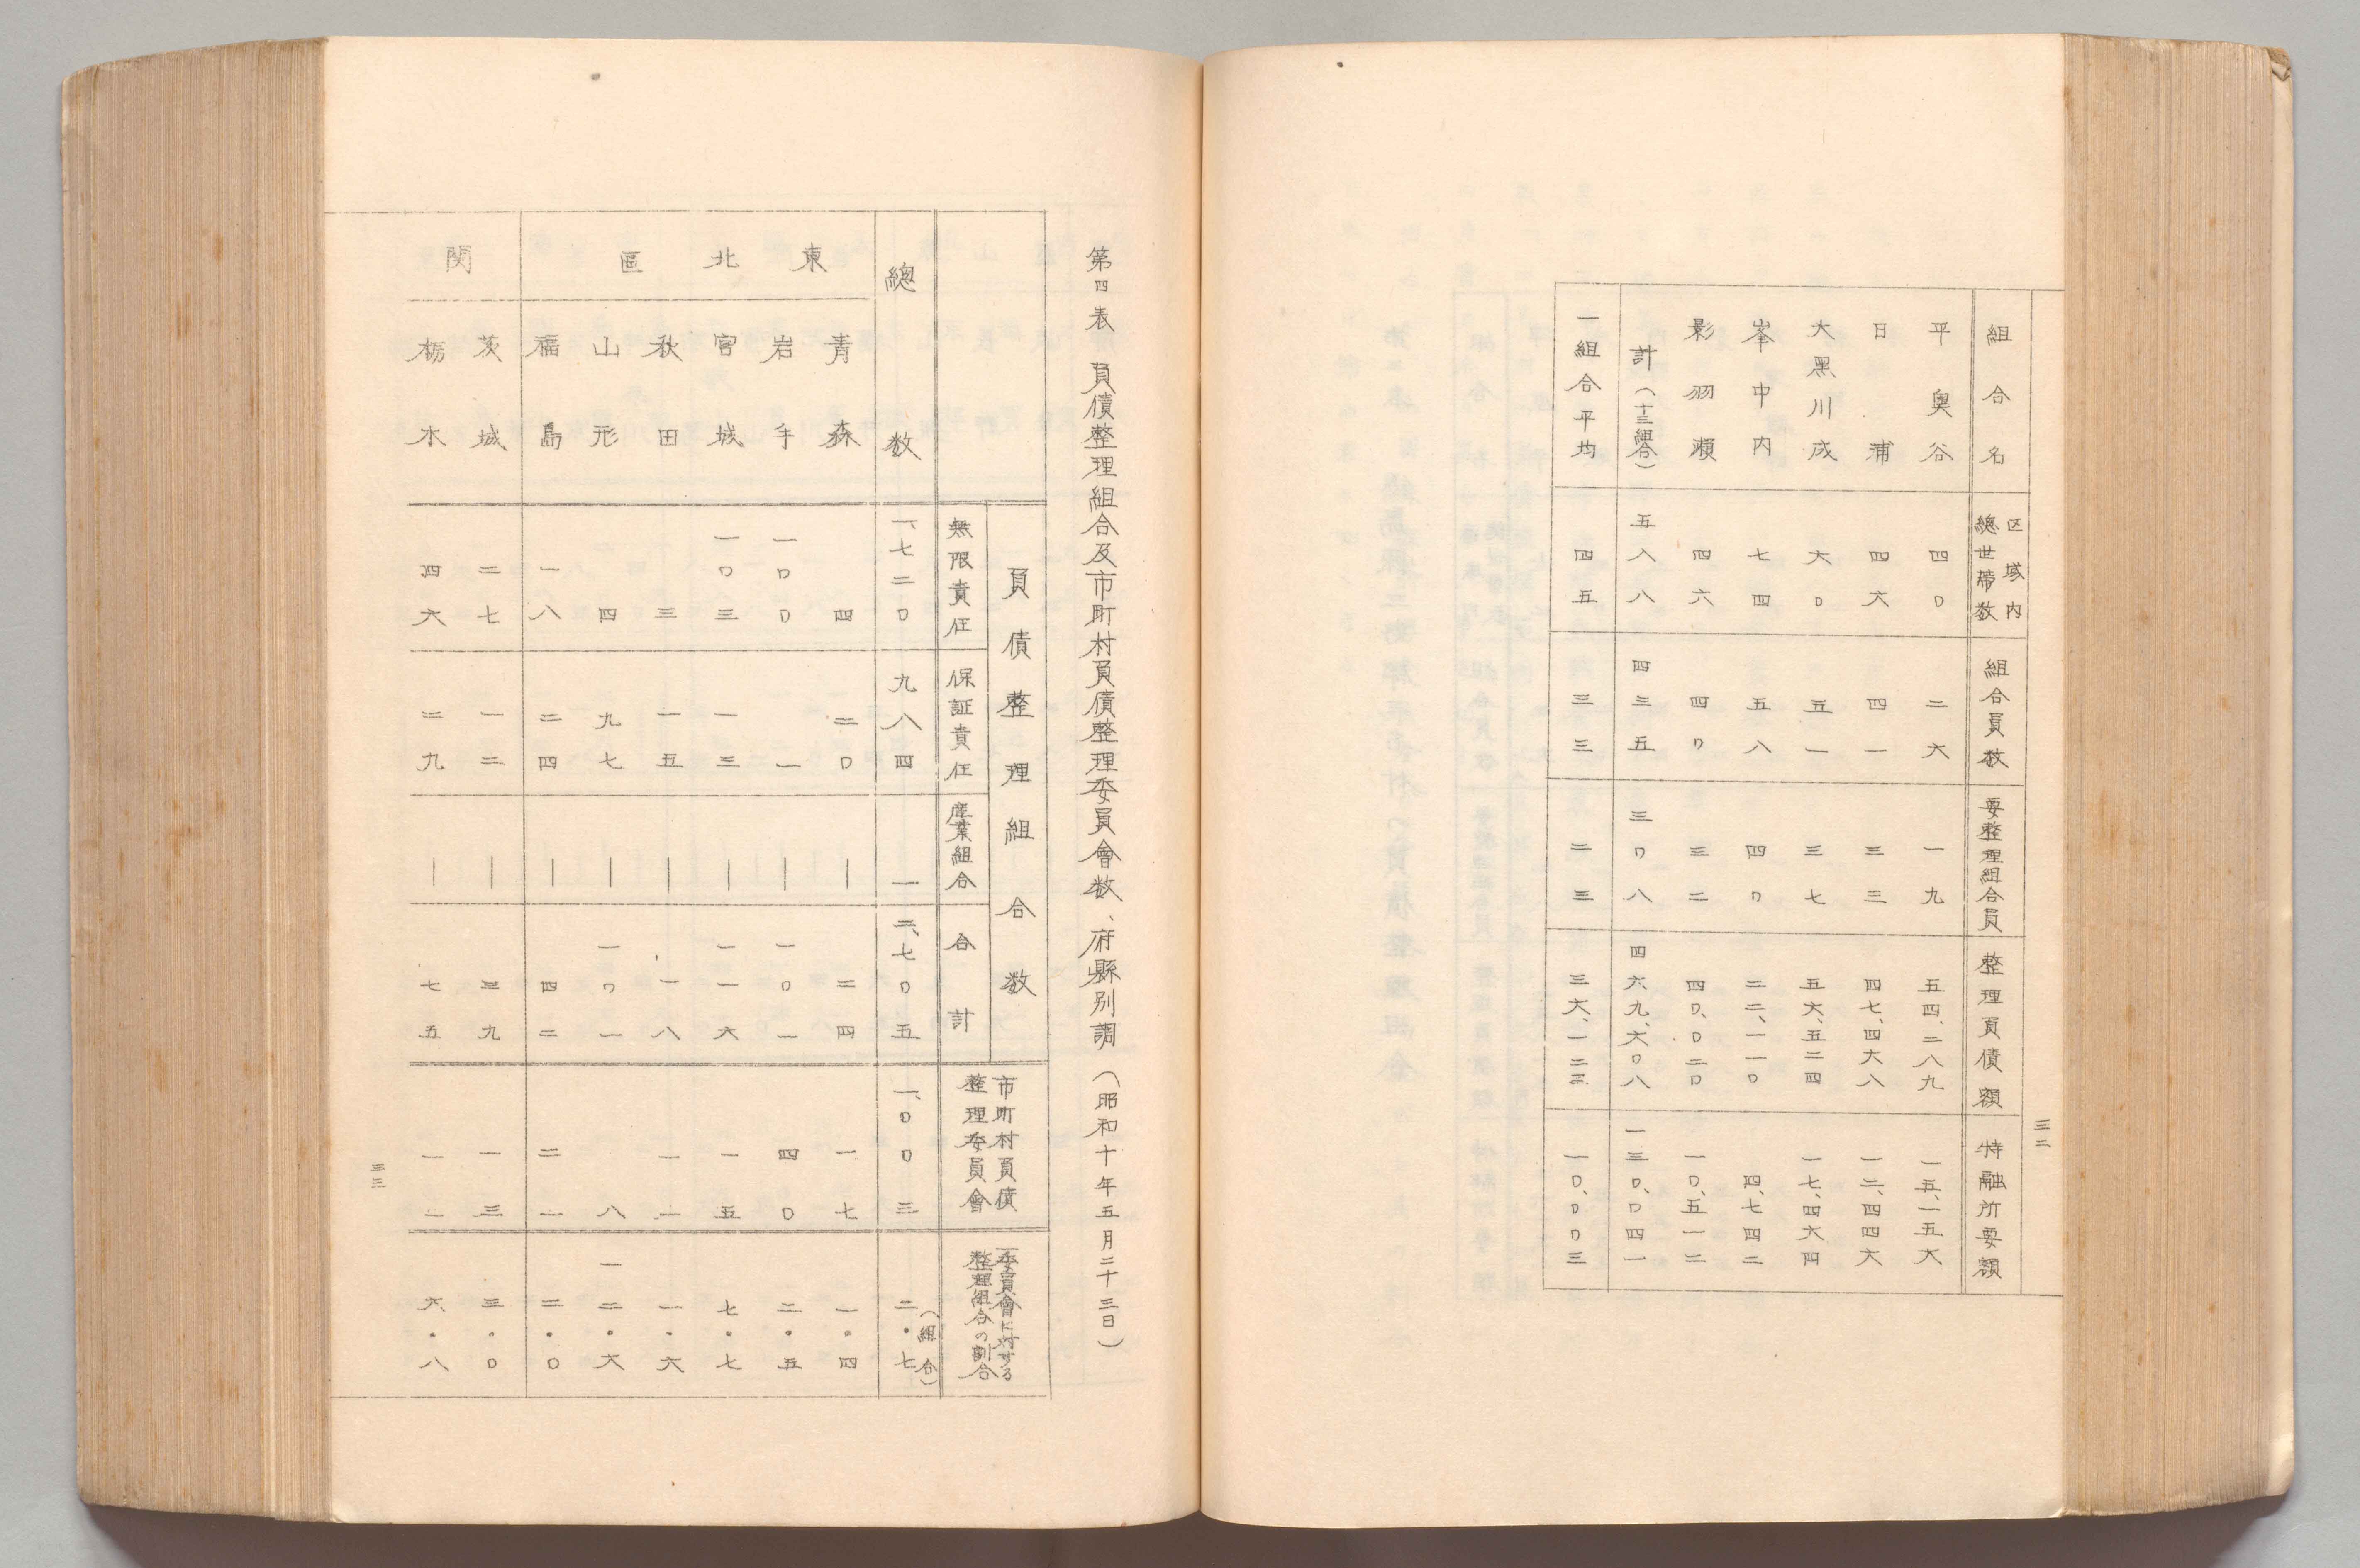 三二
組合名 区域内總世帶数 組合員数 要整理組合員 整理負債額 特融所要額
平奥谷 四〇 二六 一九 五四、二八九 一五、一五六
日浦 四六 四一 三三 四七、四六八 一二、四四六
大黒川成 六〇 五一 三七 五六、五二四 一七、四六四
峯中内 七四 五八 四〇 二二、一一〇 四、七四二
影羽瀬 四六 四〇 三二 四〇、〇二〇 一〇、五一二
計(十三組合) 五八八 四三五 三〇八 四六九、六〇八 一三〇、〇四一
一組合平均 四五 三三 二三 三六、一二三 一〇、〇〇三
第四表 負債整理組合及市町村負債整理委員會数、府縣別調(昭和十年五月二十三日)
負債整理組合数 市町村負債整理委員會 委員會に対する整理組合の割合
無限責任 保証責任 産業組合 合計
總数 一、七二〇 九八四 一 二、七〇五 一、〇〇三 二・七(組合)
東北區
青森 四 二〇 ｜ 二四 一七 一・四
岩手 一〇〇 一 ｜ 一〇一 四〇 二・五
宮城 一〇三 一三 ｜ 一一六 一五 七・七
秋田 三 一五 ｜ 一八 一一 一・六
山形 四 九七 ｜ 一〇一 八 一二・六
福島 一八 二四 ｜ 四二 二一 二・〇
関
茨城 二七 一二 ｜ 三九 一三 三・〇
栃木 四六 二九 ｜ 七五 一一 六・八
三三